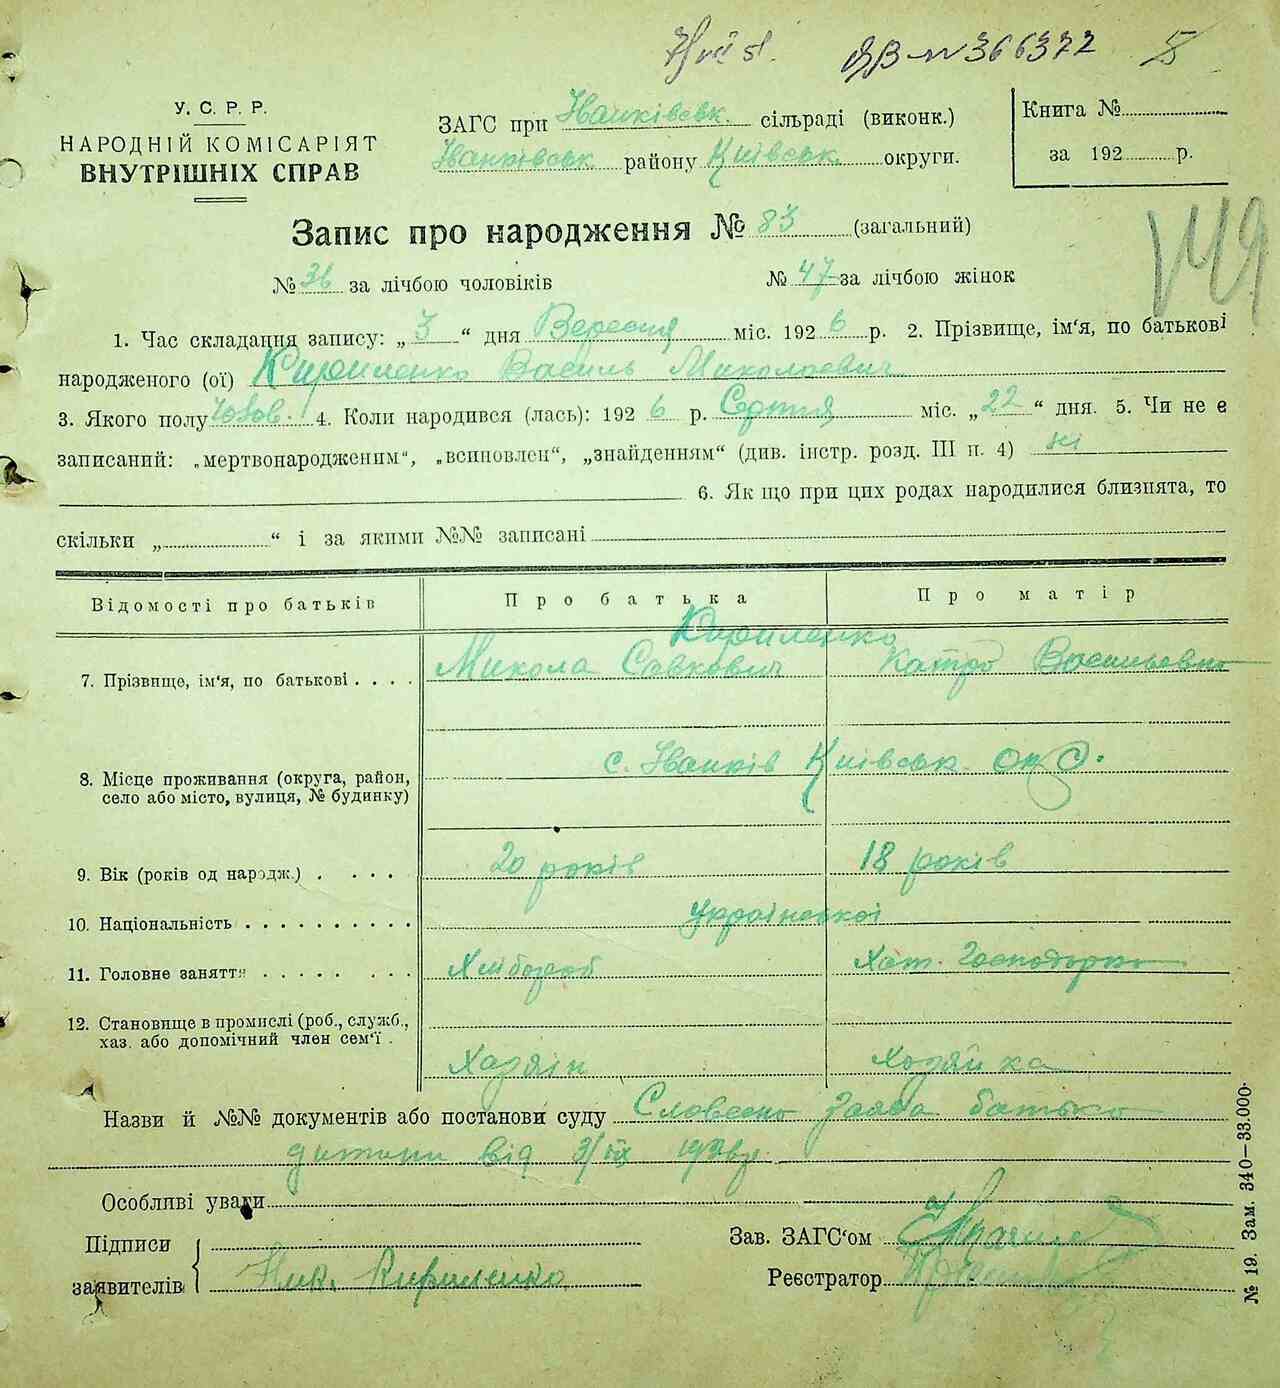 ЯВ № 366372 5
У. С. Р. Р.
НАРОДНІЙ КОМІСАРІЯТ
ВНУТРІШНІХ СПРАВ
ЗАГС при Іванківськ. сільраді (виконк.)
Іванківськ району Київськ. округи.
Книга №
за 192 р.
Запис про народження № 83 (загальний)
149
№ 36 за лічбою чоловіків № 47 за лічбою жінок
1. Час складання запису: „ 3 “ дня Вересня міс. 192 6 р. 2. Прізвище, ім‘я, по батькові
народженого (ої) Кириленко Василь Миколаевич
3. Якого полу Чолов. 4. Коли народився (лась): 192 6 р. Серпня міс. „ 22 “ дня. 5. Чи не є
записаний: „мертвонародженим“, „всиновлен“, „знайденням“ (див. інстр. розд. III п. 4) ні
6. Якщо при цих родах народилися близнята, то
скільки „ “ і за якими №№ записані
Відомості про батьків Про батька Про матір
Кириленко
7. Прізвище, ім‘я, по батькові . . . . Микола Савкович Катря Васильевна
8. Місце проживання (округа, район,
село або місто, вулиця, № будинку) с. Іванків Київськ. окр.
9. Вік (років од народж.) . . . . 20 років 18 років
10. Національність . . . . . . . . . . Української
11. Головне заняття . . . . . . . . Хлібороб Хат. Господарка
12. Становище в промислі (роб., служб.,
хаз. або допомічний член сем‘ї . Хазяін Хозяйка
Назви й №№ документів або постанови суду Словесна заява батька
дитини від 3/IX 1926р.
Особливі уваги
Підписи
заявителів Ник. Кириленко
Зав. ЗАГС‘ом
Реєстратор
№ 19. Зам. 340—33.000.